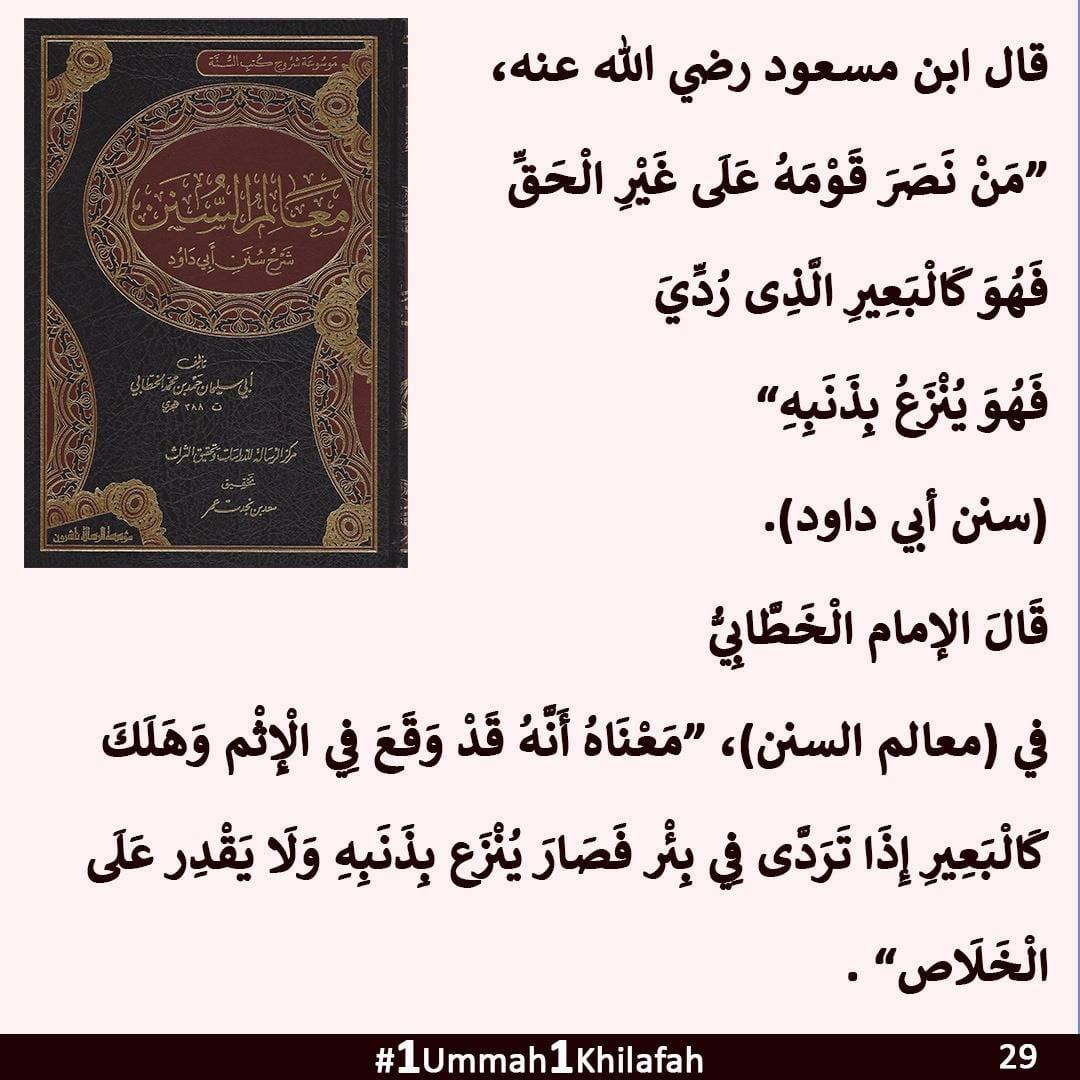 قال ابن مسعود رضي الله عنه،
”مَنْ نَصَرَ قَوْمَهُ عَلَى غَيْرِ الْحَقِّ
فَهُوَ كَالْبَعِيرِ الَّذِى رُدِّيَ
فَهُوَ يُنْزَعُ بِذَنَبِهِ“
(سنن أبي داود).
قَالَ الإمام الْخَطَّابِيُّ
في (معالم السنن)، ”مَعْنَاهُ أَنَّهُ قَدْ وَقَعَ فِي الْإِثْم وَهَلَكَ
كَالْبَعِيرِ إِذَا تَرَدَّى فِي بِئْر فَصَارَ يُنْزَع بِذَنَبِهِ وَلَا يَقْدِر عَلَى
الْخَلَاص“ .
مَوسُوعَة شرُوح كُتبِ السُّنَّة
مَعَالِمُ السُّنَن
شَرْحُ سُنَن أَبي دَاوُد
تأليف
أبي سليمان حمد بن محمد الخطابي
ت ٣٨٨ هجري
مركز الرسالة للدراسات وتحقيق التراث
تحقيق
سعد بن نجدت عمر
مؤسسة الرسالة ناشرون
#1Ummah1Khilafah
29